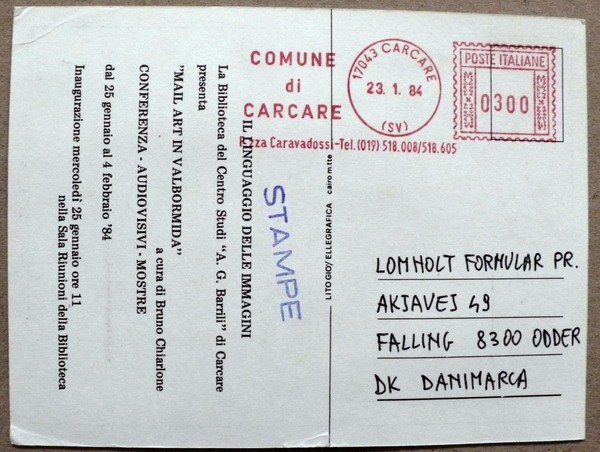 COMUNE
di
CARCARE
P.zza Caravadossi-Tel. (019) 518.008/518.605
17043 CARCARE
23. 1. 84
(SV)
POSTE ITALIANE
0300
IL LINGUAGGIO DELLE IMMAGINI
La Biblioteca del Centro Studi "A. G. Barrili" di Carcare
presenta
"MAIL ART IN VALBORMIDA"
a cura di Bruno Chiarlone
CONFERENZA - AUDIOVISIVI - MOSTRE
dal 25 gennaio al 4 febbraio '84
Inaugurazione mercoledì 25 gennaio ore 11
nella Sala Riunioni della Biblioteca
STAMPE
LOMHOLT FORMULAR PR.
AKJAVEJ 49
FALLING 8300 ODDER
DK DANIMARCA